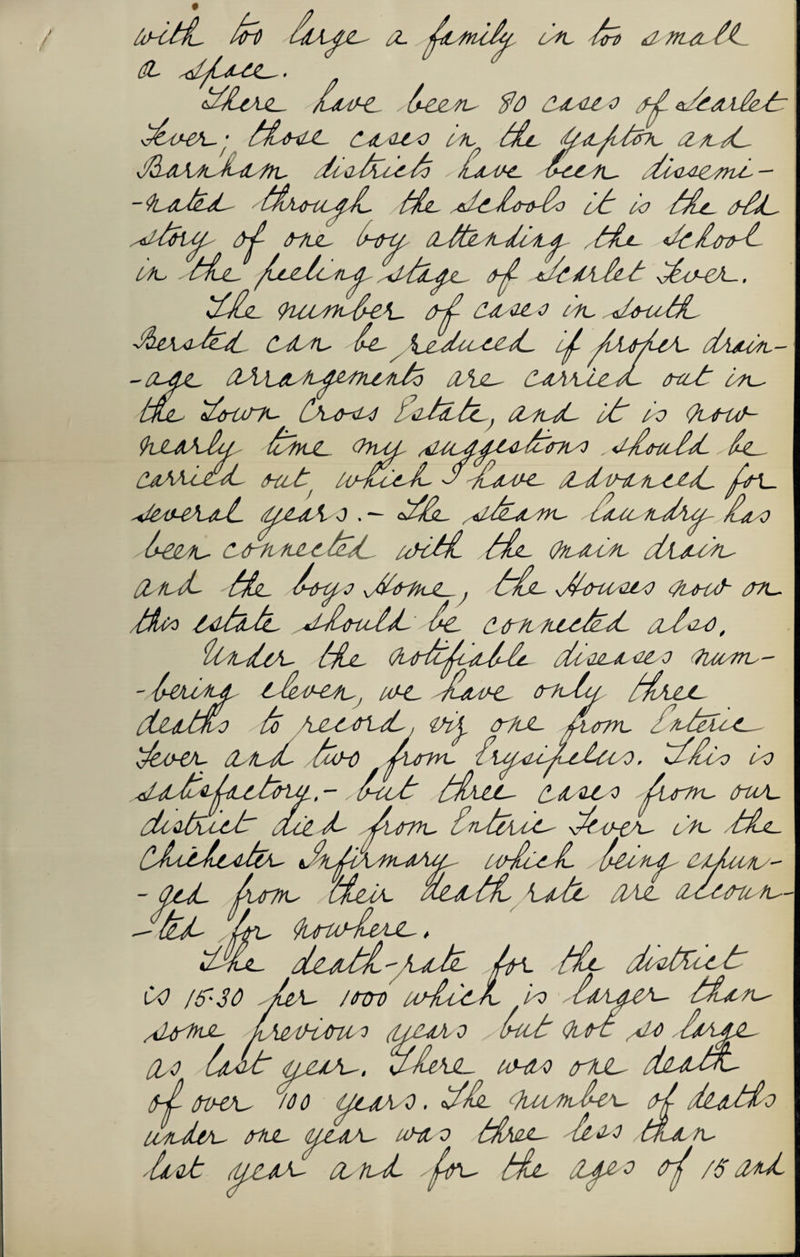 with too large a family in too small
a space.
There have been 80 cases of Scarlet
Fever; those cases in the Yapton and
Barnham districts have been dissemi-
-nated through the Schools it is the old
story of one boy attending the School
in the peeling stage of Scarlet Fever.
The number of cases in South
Bersted can be reduced if proper drain-
-age arrangements are carried out in
the Town Cross Estate, and it is now
nearly time my suggestions should be
carried out, which I have advanced for
several years.- The steam laundry has
been connected with the main drain
and the boys Home, the Houses now on
this estate should be connected also.
Under the notifiable diseases num-
-bering eleven, we have only three
deaths to record, viz one from Enteric
Fever and two from Erysipelus. This is
satisfactory,- but three cases from our
district died from Enteric Fever in the
Chichester Infirmary which being expun-
-ged from their death rate are accoun-
-ted for nowhere.
The death-rate for the district
is 15.30 per 1000 which is larger than
some previous years but not so large
as last year. There was one death
of over 100 years. The number of deaths
under one year was three less than
last year and for the ages of 15 and